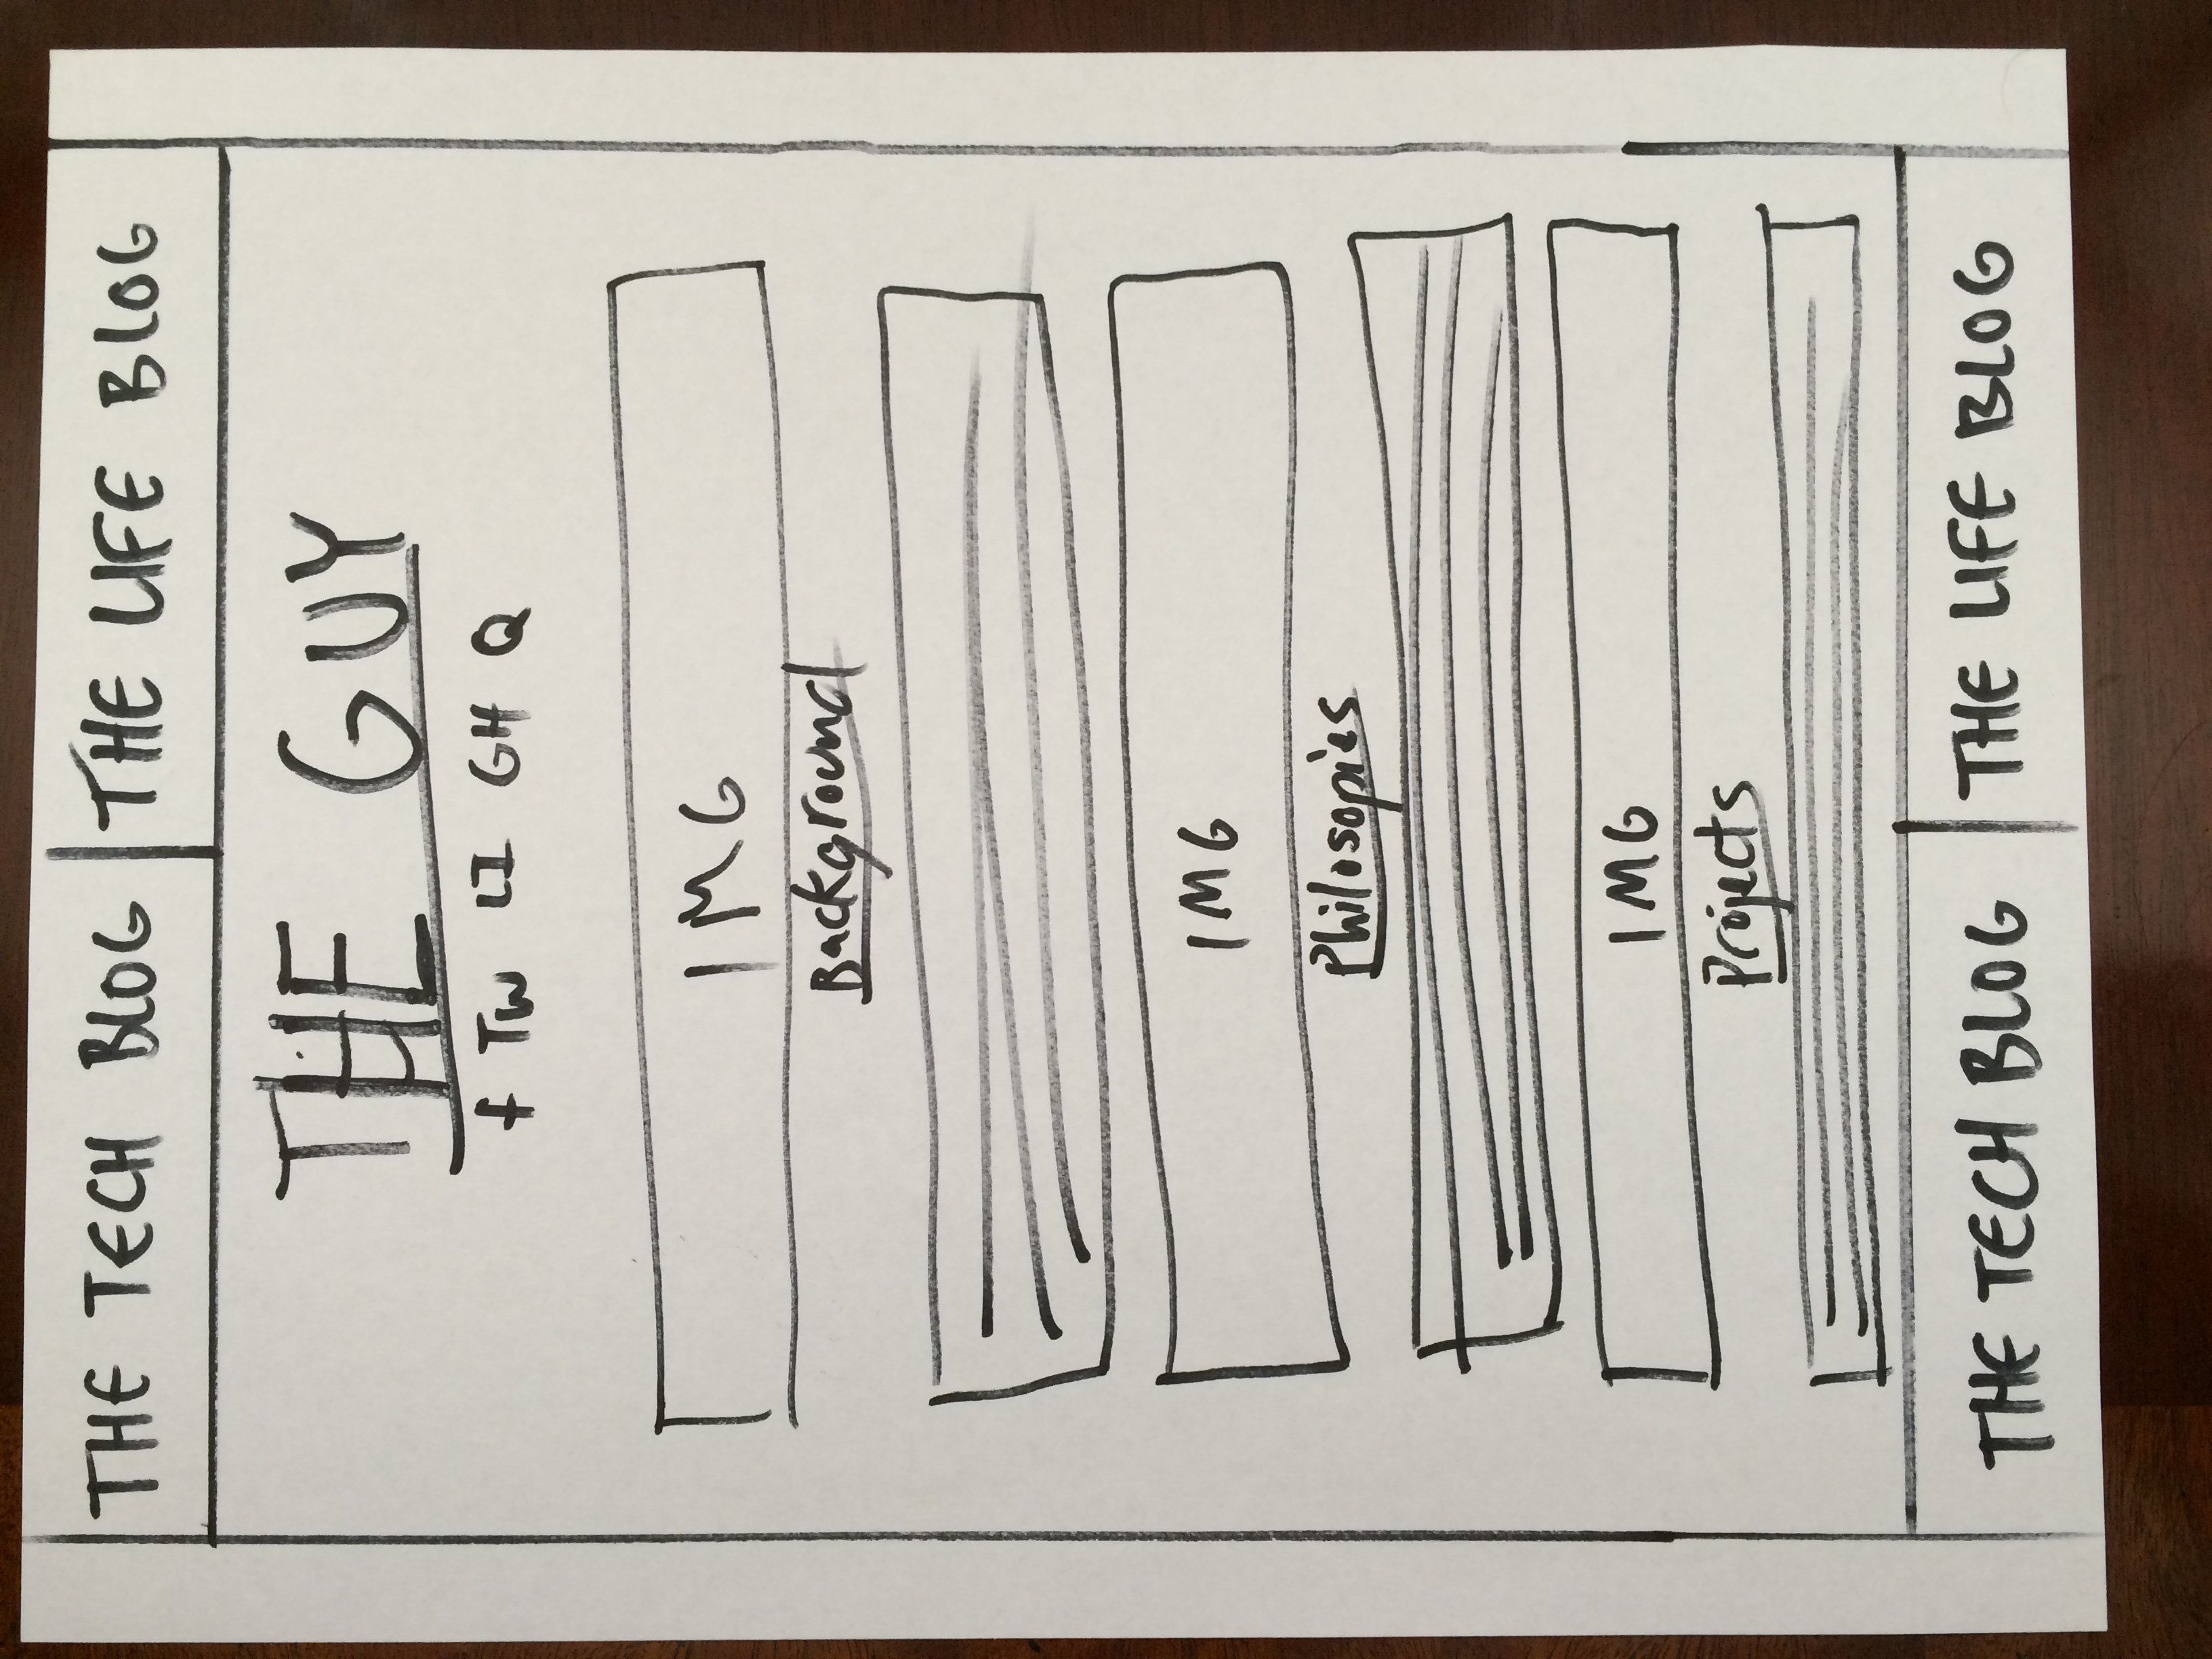 THE TECH BLOG THE LIFE BLOG
THE GUY
f TW LI GH Q
IMG
Background
IMG
Philosopies
IMG
Projects
THE TECH BLOG THE LIFE BLOG